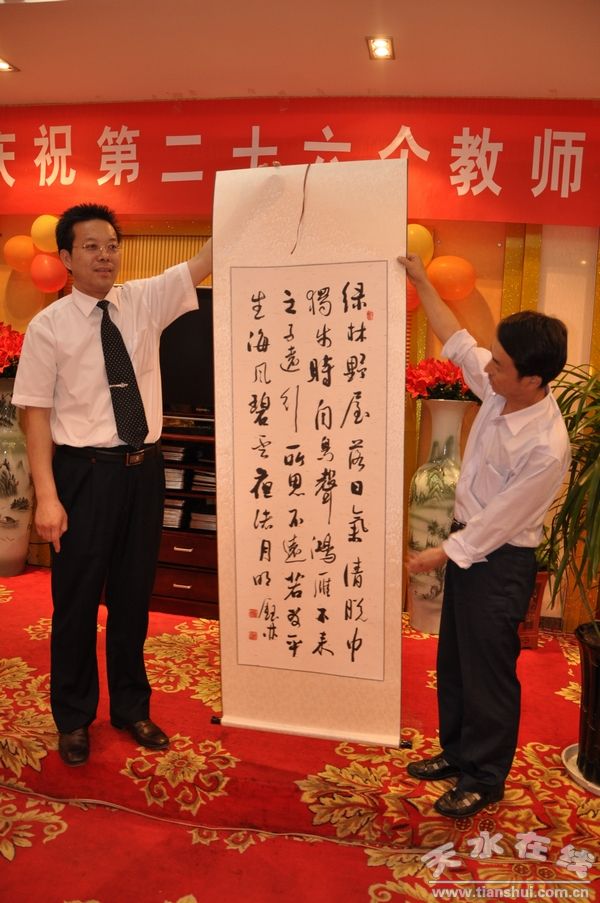 庆祝第二十六个教师
绿林野屋落日氣清脱巾
獨步時闻鸟聲鴻雁不来
之子遠行所思不遠若为平
生海风碧云夜渚月明
天水在线
www.tianshui.com.cn